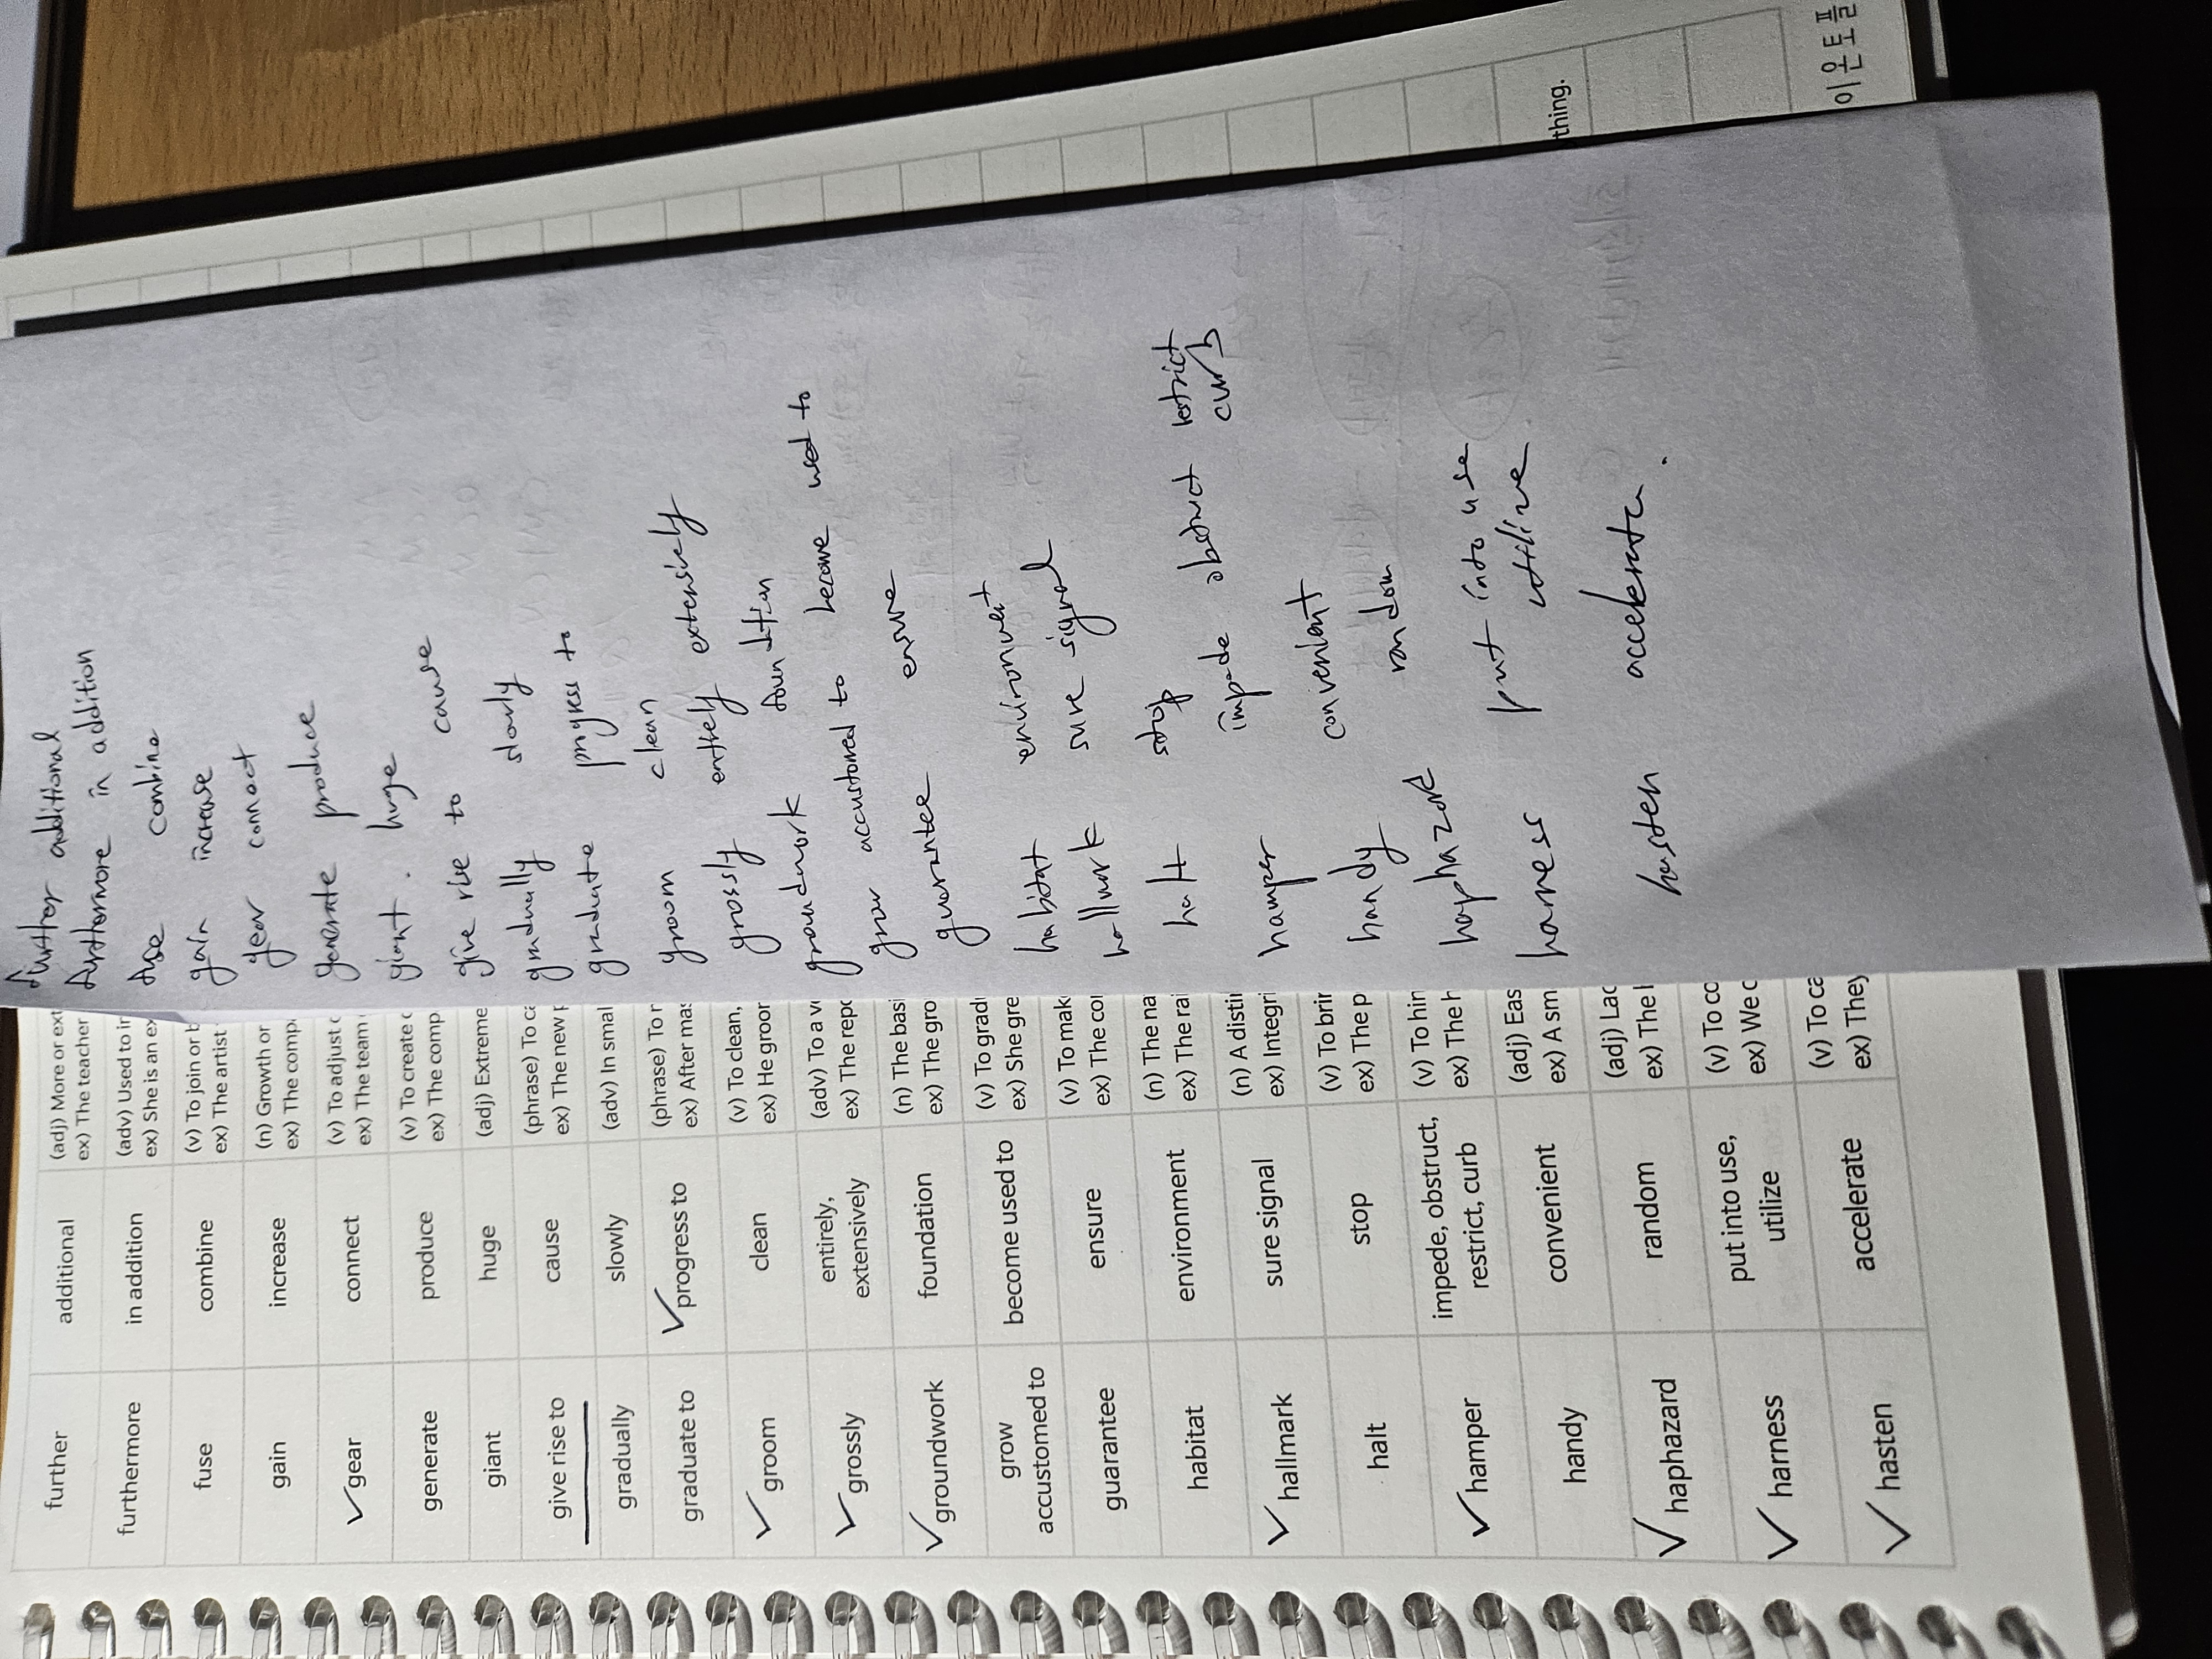 further additional (adj) More or ext
ex) The teacher
furthermore in addition (adv) Used to in
ex) She is an ex
fuse combine (v) To join or b
ex) The artist
gain increase (n) Growth or
ex) The compa
✓gear connect (v) To adjust
ex) The team
generate produce (v) To create
ex) The comp
giant huge (adj) Extreme
give rise to cause (phrase) To ca
ex) The new p
gradually slowly (adv) In smal
graduate to ✓progress to (phrase) To r
ex) After mas
✓groom clean (v) To clean,
ex) He groor
✓grossly entirely, (adv) To a v
extensively ex) The repo
✓groundwork foundation (n) The basi
ex) The gro
grow become used to (v) To gradi
accustomed to ex) She gre
guarantee ensure (v) To mak
ex) The co
habitat environment (n) The na
ex) The rai
✓hallmark sure signal (n) A distin
ex) Integri
halt stop (v) To brir
ex) The p
✓hamper impede, obstruct, (v) To hin
restrict, curb ex) The h
handy convenient (adj) Eas
ex) A sm
✓haphazard random (adj) Lac
ex) The l
✓harness put into use, (v) To co
utilize ex) We c
✓hasten accelerate (v) To ca
ex) They
further additional
furthermore in addition
fuse combine
gain increase
gear connect
generate produce
giant . huge
give rise to cause
gradually slowly
graduate progress to
groom clean
grossly entirely extensively
groundwork foundation
grow accustomed to become used to
guarantee ensure
habitat environment
hallmark sure signal
halt stop
hamper impede obstruct restrict
curb
handy convenient
haphazard random
harness put into use
utilize
hasten accelerate .
thing.
이은토플